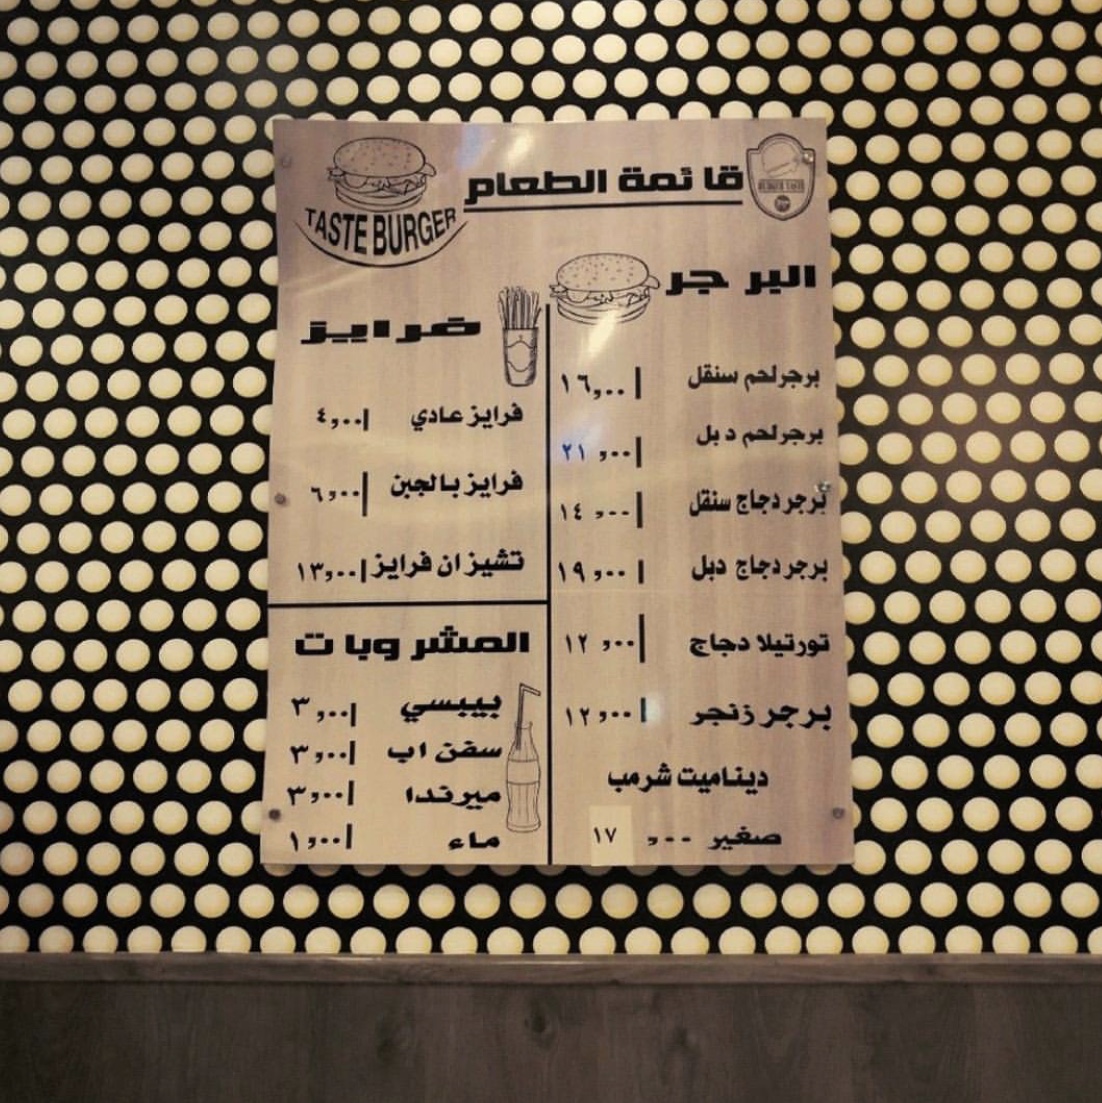 قائمة الطعام
TASTE BURGER
البرجر
برجر لحم سنقل ١٦,٠٠
برجر لحم دبل ٢١ ,٠٠
برجر دجاج سنقل ١٤ ,٠٠
برجر دجاج دبل ١٩ ,٠٠
تورتيلا دجاج ١٢ ,٠٠
برجر زنجر ١٢,٠٠
ديناميت شرمب
صغير ,٠٠ ١٧
فرايز
فرايز عادي ٤,٠٠
فرايز بالجبن ٦,٠٠
تشيز ان فرايز ١٣,٠٠
المشروبات
بيبسي ٣ ,٠٠
سفن اب ٣,٠٠
ميرندا ٣,٠٠
ماء ١,٠٠